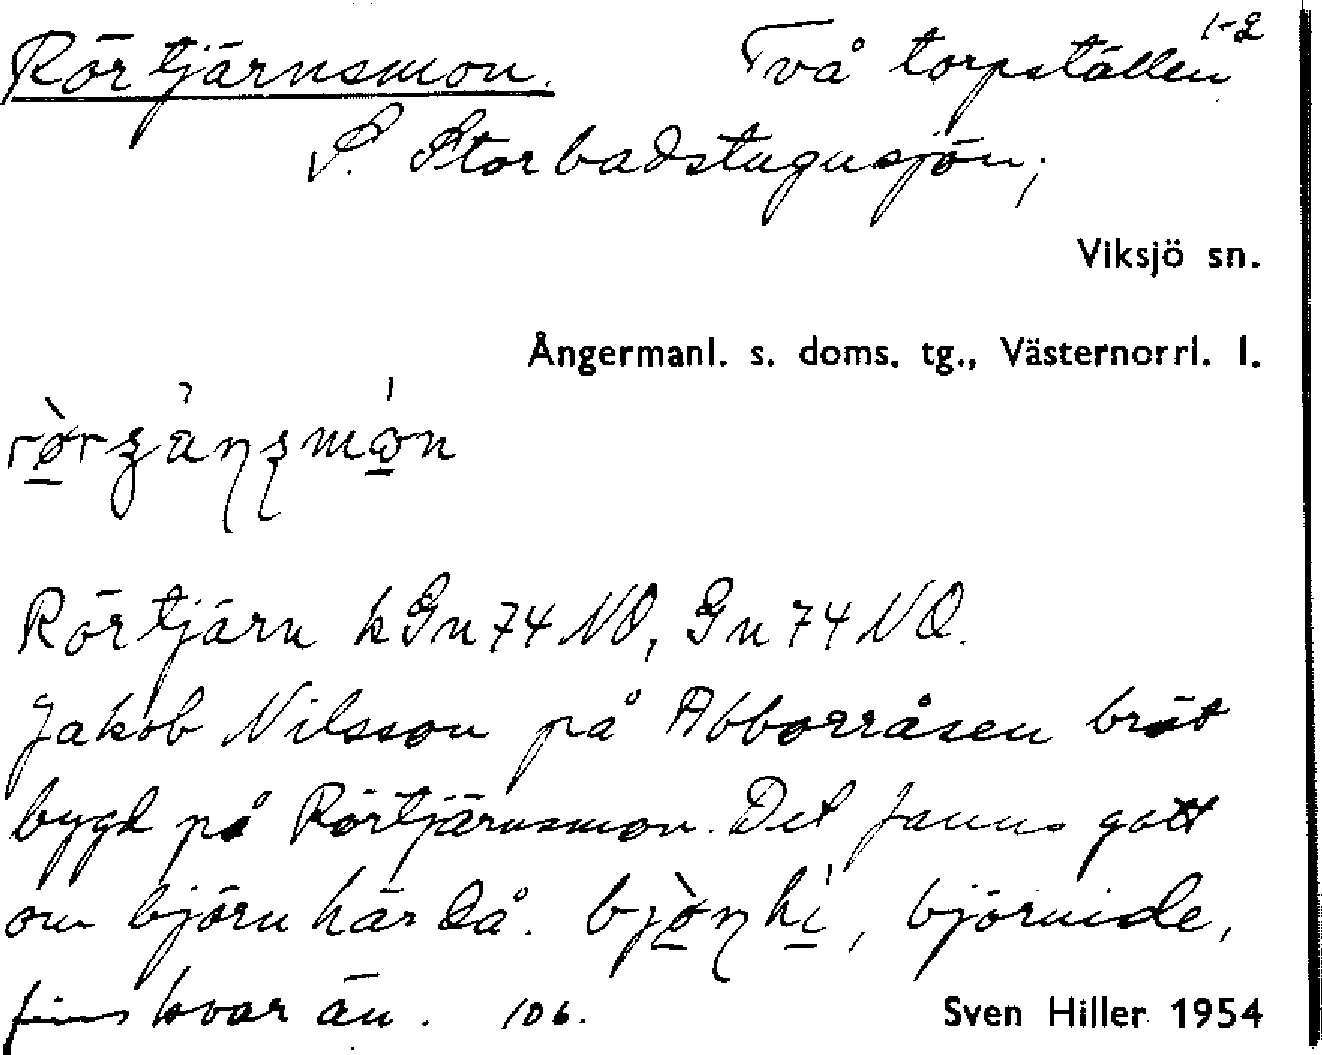 Rörtjärnsmon. Två torpställen 1-2
S. Storbadstugusjön;
Viksjö sn.
Ångermanl. s. doms. tg., Västernorrl. l.
Rörtjärn k Gn 74 NO, Gn 74 NO.
Jakob Nilsson på Abborråsen bröt
bygd på Rörtjärnsmon. Det fanns gott
om björn här då. , björnide,
finns kvar än. 106. Sven Hiller 1954